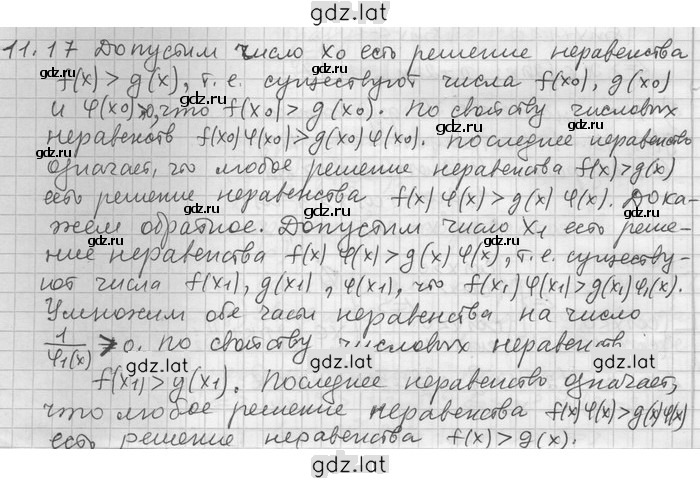 gdz.lat
11.17 Допустим число x₀ есть решение неравенства
f(x) > g(x), т.е. существуют числа f(x₀), g(x₀)
и φ(x₀)>0, что f(x₀) > g(x₀). По свойству числовых
неравенств f(x₀)φ(x₀)>g(x₀)φ(x₀). Последнее неравенство
означает, что любое решение неравенства f(x)>g(x)
есть решение неравенства f(x)φ(x)>g(x)φ(x). Дока-
жем обратное. Допустим число x₁ есть реше-
ние неравенства f(x)φ(x)>g(x)φ(x), т.е. существу-
ют числа f(x₁), g(x₁), φ(x₁), что f(x₁)φ(x₁)>g(x₁)φ₁(x).
Умножим обе части неравенства на число
1/φ₁(x) > 0. По свойству числовых неравенств
f(x₁)>g(x₁). Последнее неравенство означает,
что любое решение неравенства f(x)φ(x)>g(x)φ(x)
есть решение неравенства f(x)>g(x).
gdz.lat